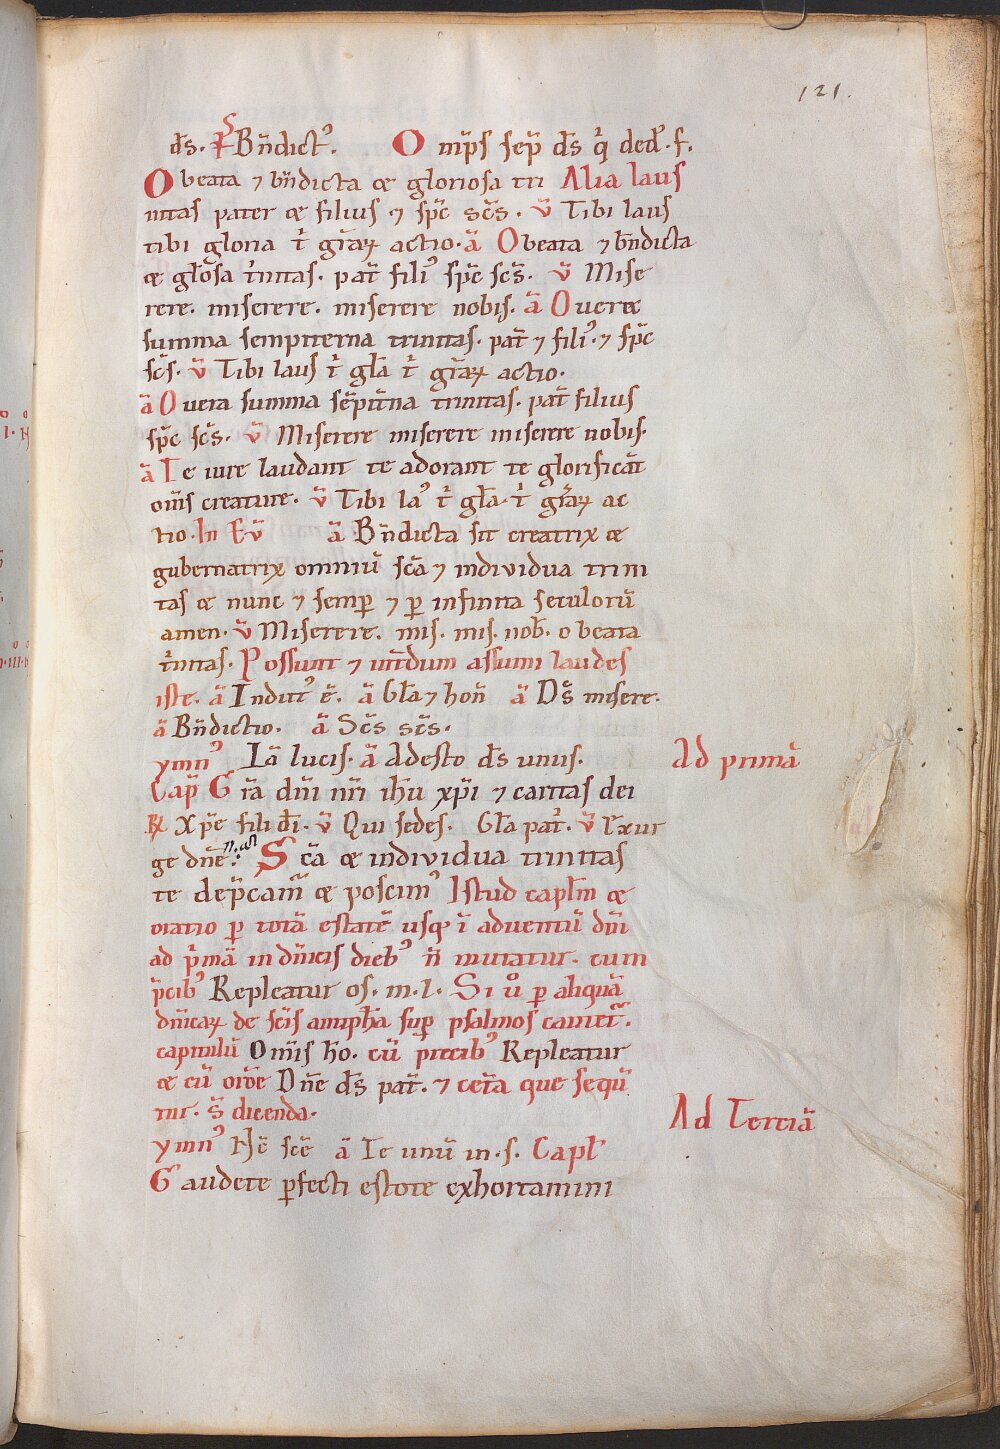 121.
d̄s. ℟ B̄ndict᾽. Om̄ps sep̄ d̄s q̇ ded᾽. f.
O beata ⁊ b̄ndicta æ gloriosa tri Alia laus
nitas pater æ filius ⁊ sp̄c sc̄s. v̄ Tibi laus
tibi gloria t̄ gr̄aꝝ actio. ā O beata ⁊ b̄ndicta
æ gl̄osa t̄nitas. pat̄ fili᾽ sp̄c sc̄s. v̄ Mise
rere. miserere. miserere nobis. ā O uera æ
summa sempiterna trinitas. pat̄ ⁊ fili᾽. ⁊ sp̄c
sc̄s. v̄ Tibi laus t̄ gl̄a t̄ gr̄aꝝ actio.
ā O uera summa sēpit̄na trinitas. pat̄ filius
sp̄c sc̄s. v̄ Miserere miserere miserere nobis.
ā Te iure laudant te adorant te glorificāt
om̄s creature. v̄ Tibi la᾽ t̄ gl̄a. t̄ gr̄aꝝ ac
tio. In Ev̄ ā B̄ndicta sit creatrix æ
gubernatrix omniū sc̄a ⁊ individua trini
tas æ nunc ⁊ semꝑ ⁊ ꝑ infinita seculorū
amen. v̄ Miserere. mis. mis. nob̄. o beata
t̄nitas. Possunt ⁊ int̄dum assumi laudes
iste. ā Indut᾽ ē. ā Gl̄a ⁊ hon̄ ā D̄s misere.
ā B̄ndictio. ā Sc̄s sc̄s.
ymn᾽ Iā lucis. ā Adesto d̄s unus. Ad primā
Cap̄ Gr̄a dn̄i nr̄i ih̄u xp̄i ⁊ caritas dei
℟ Xp̄e fili d̄i. v̄ Qui sedes. Gl̄a pat̄. v̄ Exur
ge dn̄e. Sc̄a æ individua trinitas
te dep̄cam̄ æ poscim᾽ Istud capl̄m æ
oratio ꝑ totā estatē usqꝫ ī adventū dn̄i
ad p̄mā in dn̄icis dieb᾽ n̄ mutatur. cum
p̄cib᾽ Repleatur os. m. l. Si ů ꝑ aliquā
dn̄icaꝝ de sc̄is antiph̄a suꝑ psalmos cantet̄.
capitulū Om̄is ho. cū precib᾽ Repleatur
æ cū or̄oe Dn̄e d̄s pat̄. ⁊ cet̄a que seqū
tur. s̄ dicenda. Ad Terciā
ymn᾽ Nc̄ sc̄e ā Te unū in. s. Capl̄
Gaudete ꝑfecti estote exhortamini